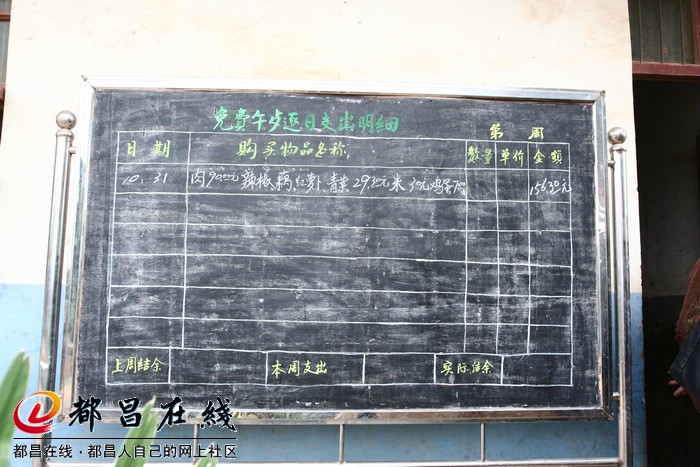 免费午歺逐日支出明细
第 周
日 期 购买物品名称 数量 单价 金额
10.31 肉90元 辣椒、藕、红萝卜、青菜 29.30元 米 30元 鸡蛋7元 156.30元
上周结余 本周支出 实际结余
都昌在线
都昌在线·都昌人自己的网上社区